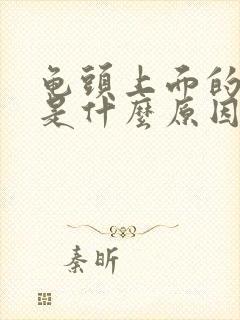 龟頭上而的
是什麼原因
秦昕